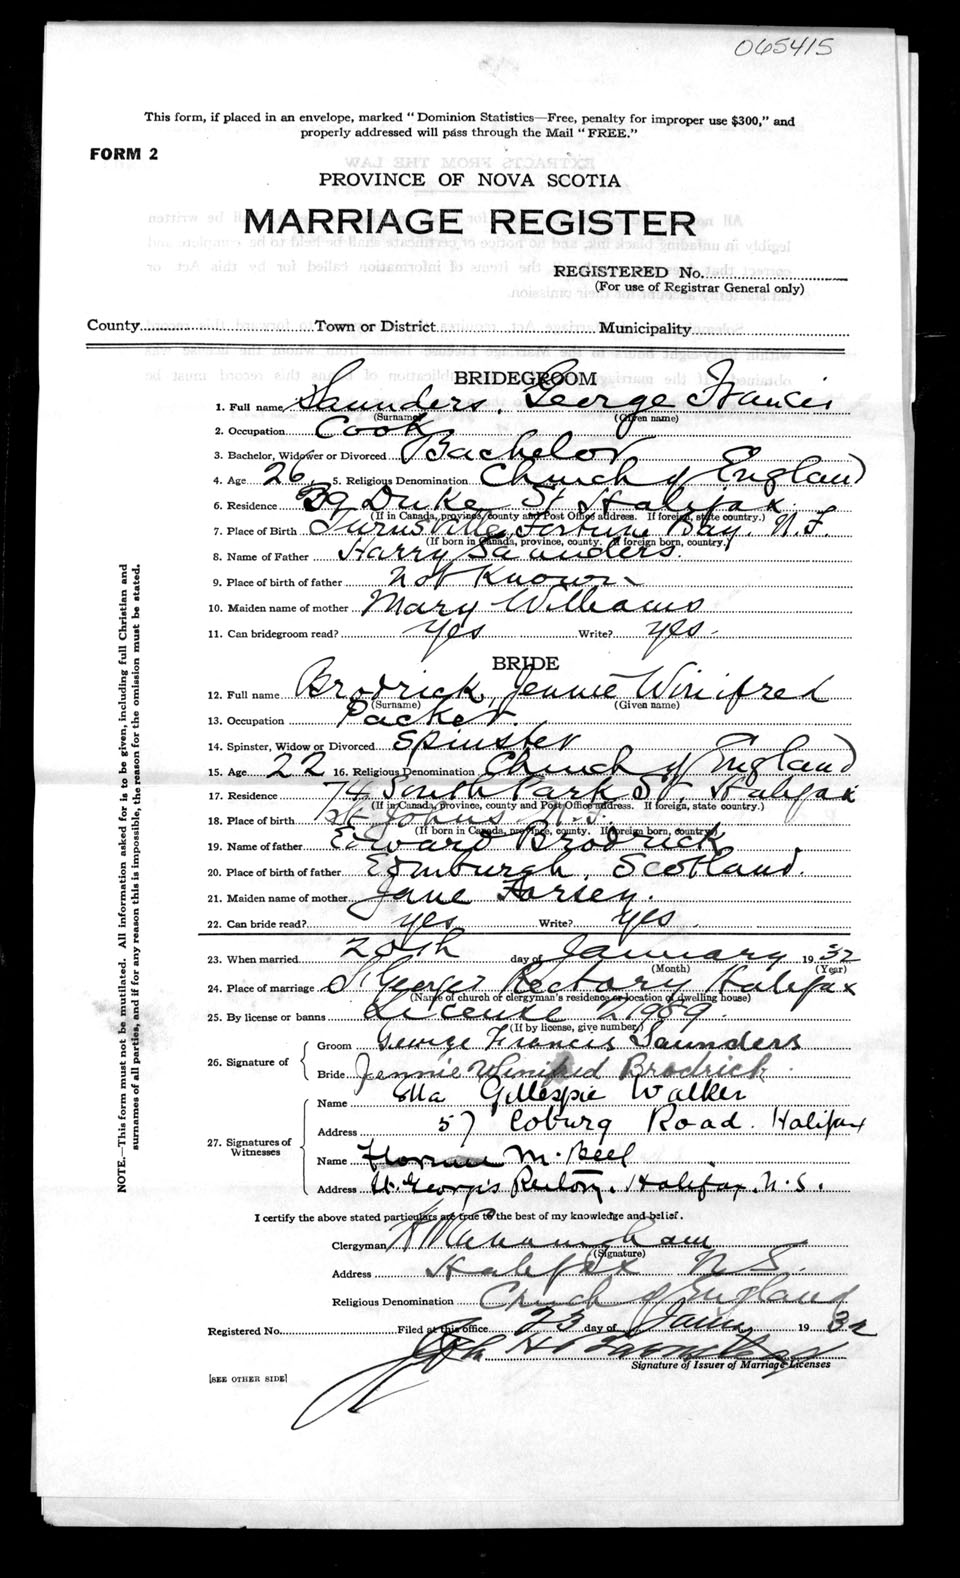 065415
This form, if placed in an envelope, marked "Dominion Statistics—Free, penalty for improper use $300," and
properly addressed will pass through the Mail "FREE."
FORM 2
PROVINCE OF NOVA SCOTIA
MARRIAGE REGISTER
REGISTERED No.
(For use of Registrar General only)
County Town or District Municipality
BRIDEGROOM
1. Full name Saunders, George Francis
(Surname) (Given name)
2. Occupation Cook
3. Bachelor, Widower or Divorced Bachelor
4. Age 26 5. Religious Denomination Church of England
6. Residence 39 Duke St Halifax
(If in Canada, province, county and Post Office address. If foreign, state country.)
7. Place of Birth Fortune Bay, N.F.
(If born in Canada, province, county. If foreign born, country.)
8. Name of Father Harry Saunders.
9. Place of birth of father Not Known
10. Maiden name of mother Mary Williams
11. Can bridegroom read? yes Write? yes.
BRIDE
12. Full name Brodrick, Jennie Winifred
(Surname) (Given name)
13. Occupation Packer.
14. Spinster, Widow or Divorced Spinster
15. Age 22 16. Religious Denomination Church of England
17. Residence 74 South Park St, Halifax
(If in Canada, province, county and Post Office address. If foreign, state country.)
18. Place of birth St Johns N.F.
(If born in Canada, province, county. If foreign born, country)
19. Name of father Edward Brodrick
20. Place of birth of father Edinburgh, Scotland.
21. Maiden name of mother Jane Forsey.
22. Can bride read? yes Write? yes.
23. When married 20th day of January 1932
(Month) (Year)
24. Place of marriage St Georges Rectory Halifax
(Name of church or clergyman's residence or location of dwelling house)
25. By license or banns License 21959.
(If by license, give number)
26. Signature of
Groom George Francis Saunders
Bride Jennie Winifred Brodrick
27. Signatures of Witnesses
Name Ella Gillespie Walker
Address 57 Coburg Road. Halifax
Name M. Bell
Address St. George's Rectory. Halifax. N.S.
I certify the above stated particulars are true to the best of my knowledge and belief.
Clergyman
(Signature)
Address Halifax N S.
Religious Denomination Church of England
Registered No. Filed at this office 23 day of Jany 1932
Signature of Issuer of Marriage Licenses
[SEE OTHER SIDE]
NOTE.—This form must not be mutilated. All information asked for is to be given, including full Christian and
surnames of all parties, and if for any reason this is impossible, the reason for the omission must be stated.